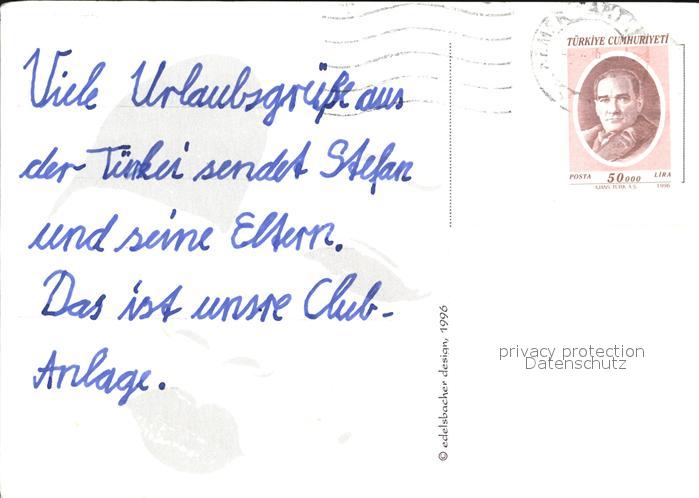 Viele Urlaubsgrüße aus
der Türkei sendet Stefan
und seine Eltern.
Das ist unsre Club-
Anlage.
© edelsbacher design, 1996
TÜRKİYE CUMHURİYETİ
POSTA 50000 LİRA
AJANS-TÜRK A.Ş. 1996
privacy protection
Datenschutz